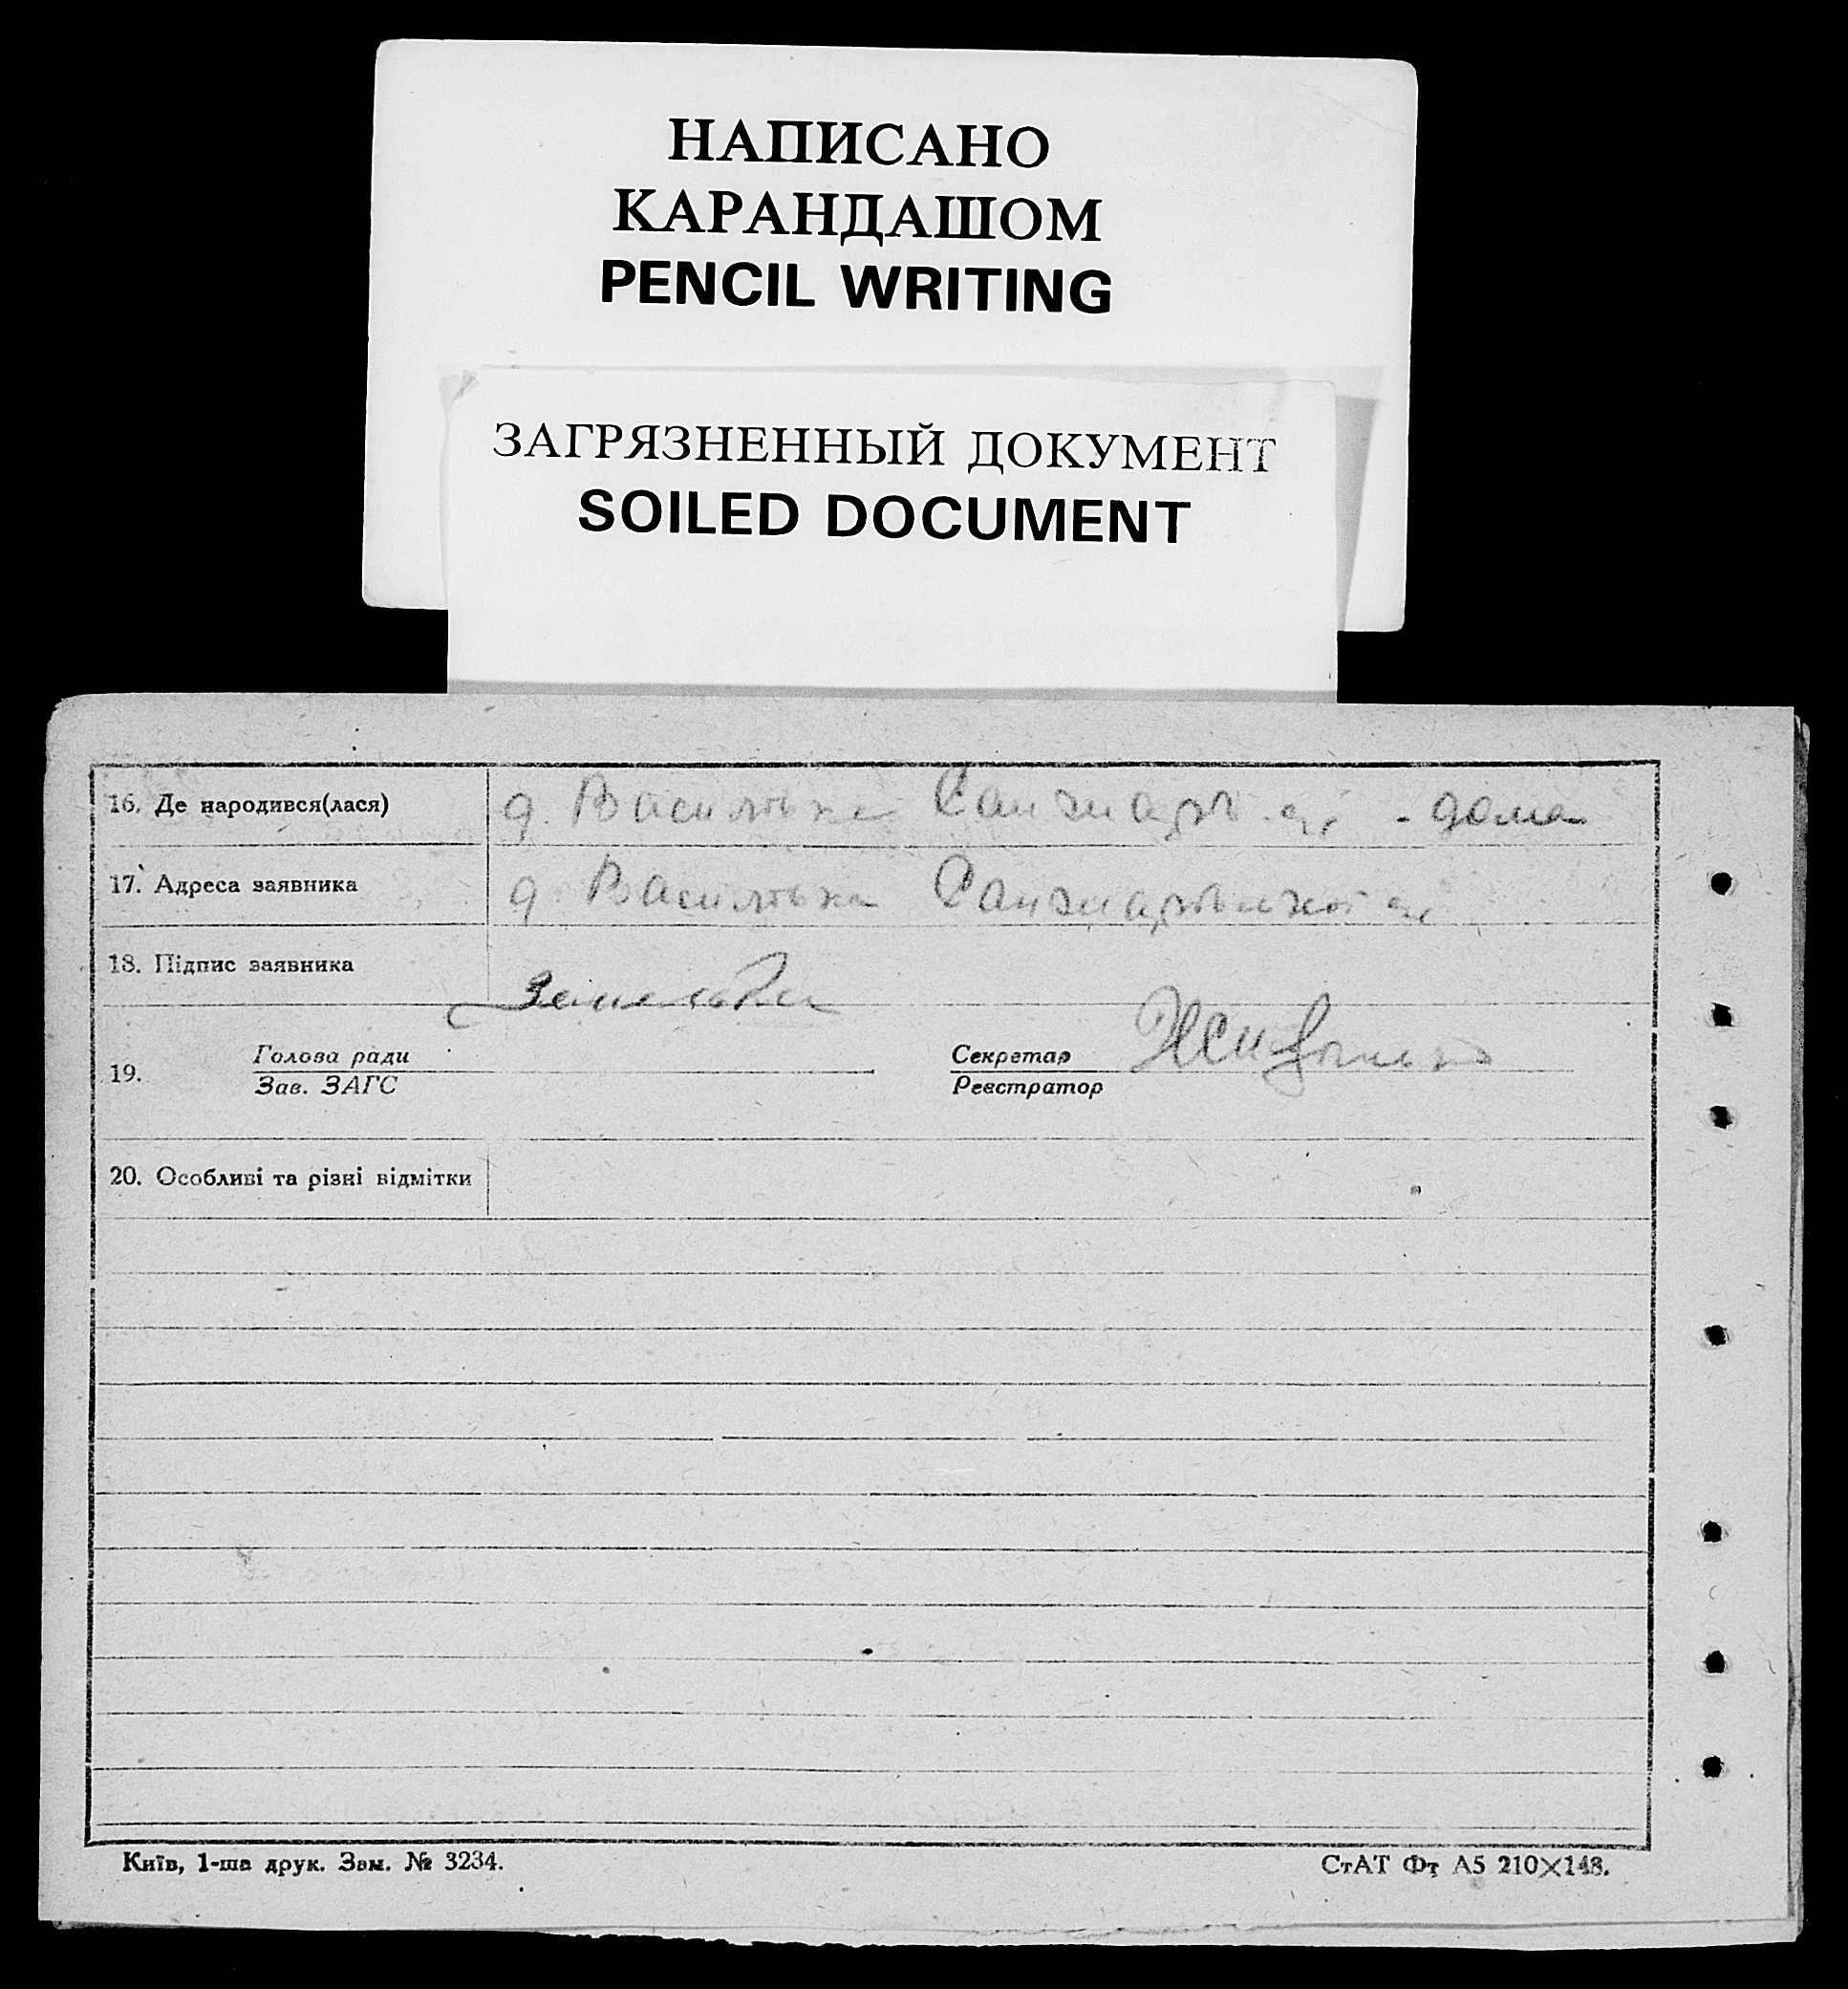 НАПИСАНО
КАРАНДАШОМ
PENCIL WRITING
ЗАГРЯЗНЕННЫЙ ДОКУМЕНТ
SOILED DOCUMENT
16. Де народився(лася) д. Василівка Санжарів - дома
17. Адреса заявника д. Василівка
18. Підпис заявника
19. Голова ради Секретар
Зав. ЗАГС Реєстратор
20. Особливі та різні відмітки
Київ, 1-ша друк. Зам. № 3234. СтАТ Фт А5 210×148.